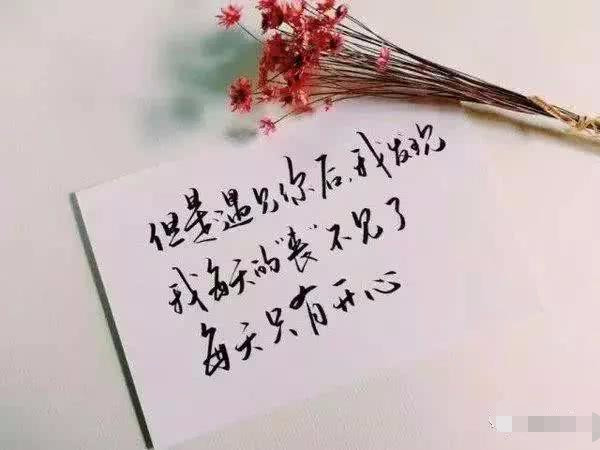 但是遇见你后,我发现
我每天的“丧”不见了
每天只有开心